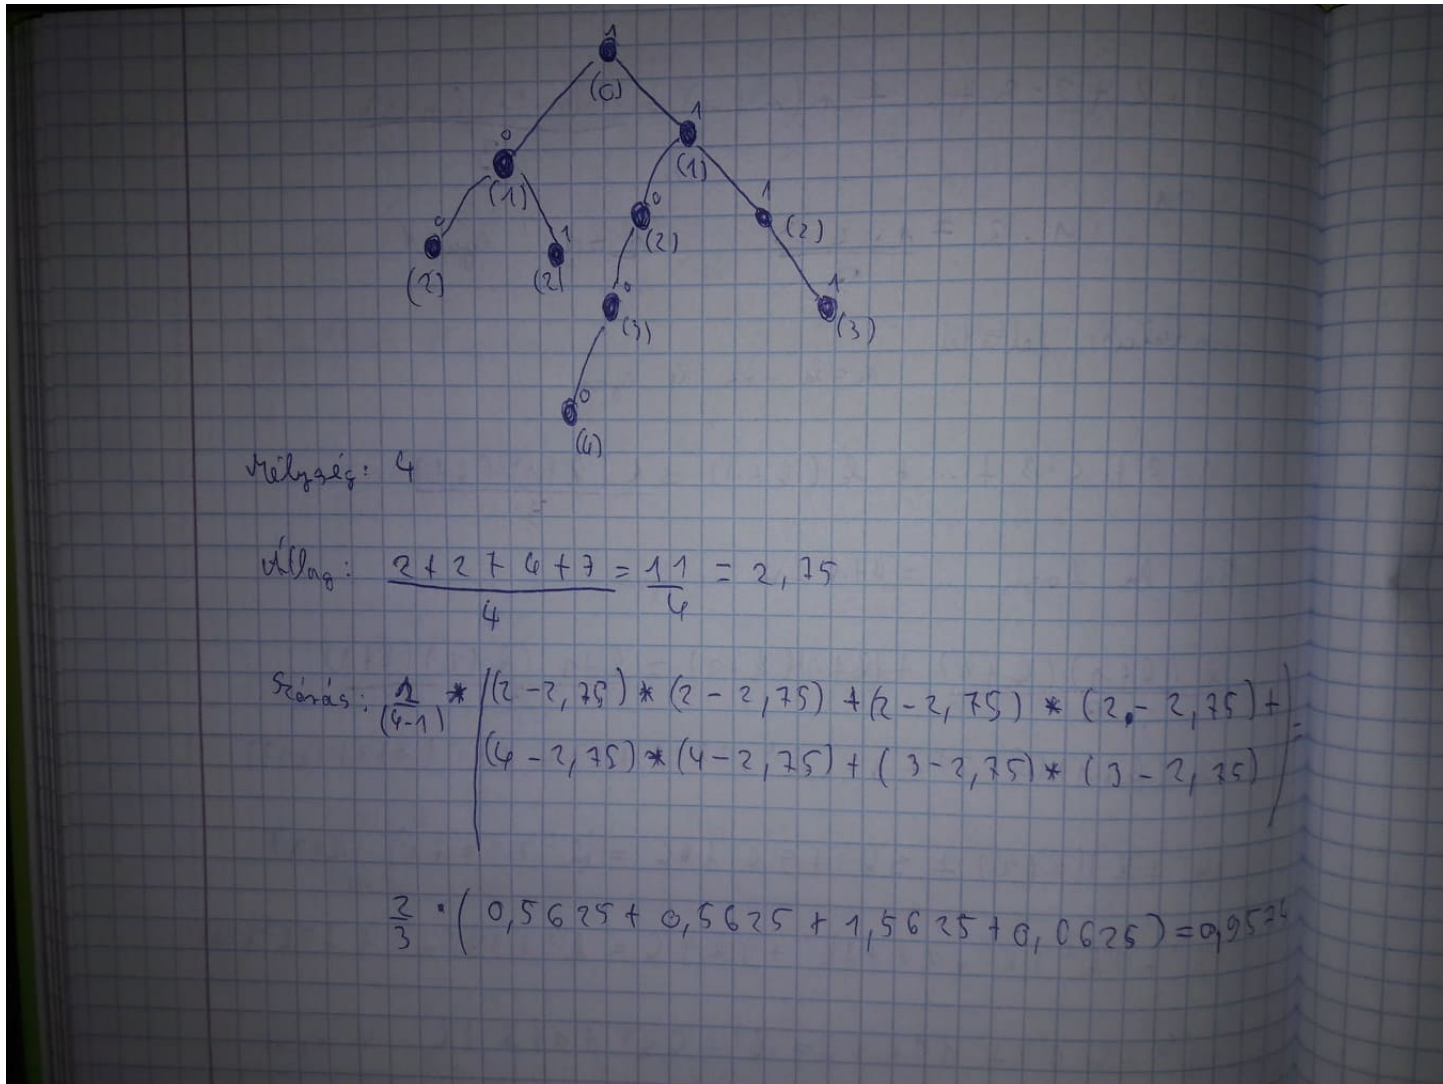 1
(0)
0 1
(1) (1)
0 1 0 1
(2) (2) (2) (2)
0 1
(3) (3)
0
(4)
Mélység: 4
Átlag: 2+2+4+7 = 11 = 2,75
4 4
Szórás: 1 * ((2-2,75)*(2-2,75)+(2-2,75)*(2-2,75)+
(4-1)
(4-2,75)*(4-2,75)+(3-2,75)*(3-2,75)) =
2/3 · (0,5625+0,5625+1,5625+0,0625)=0,957